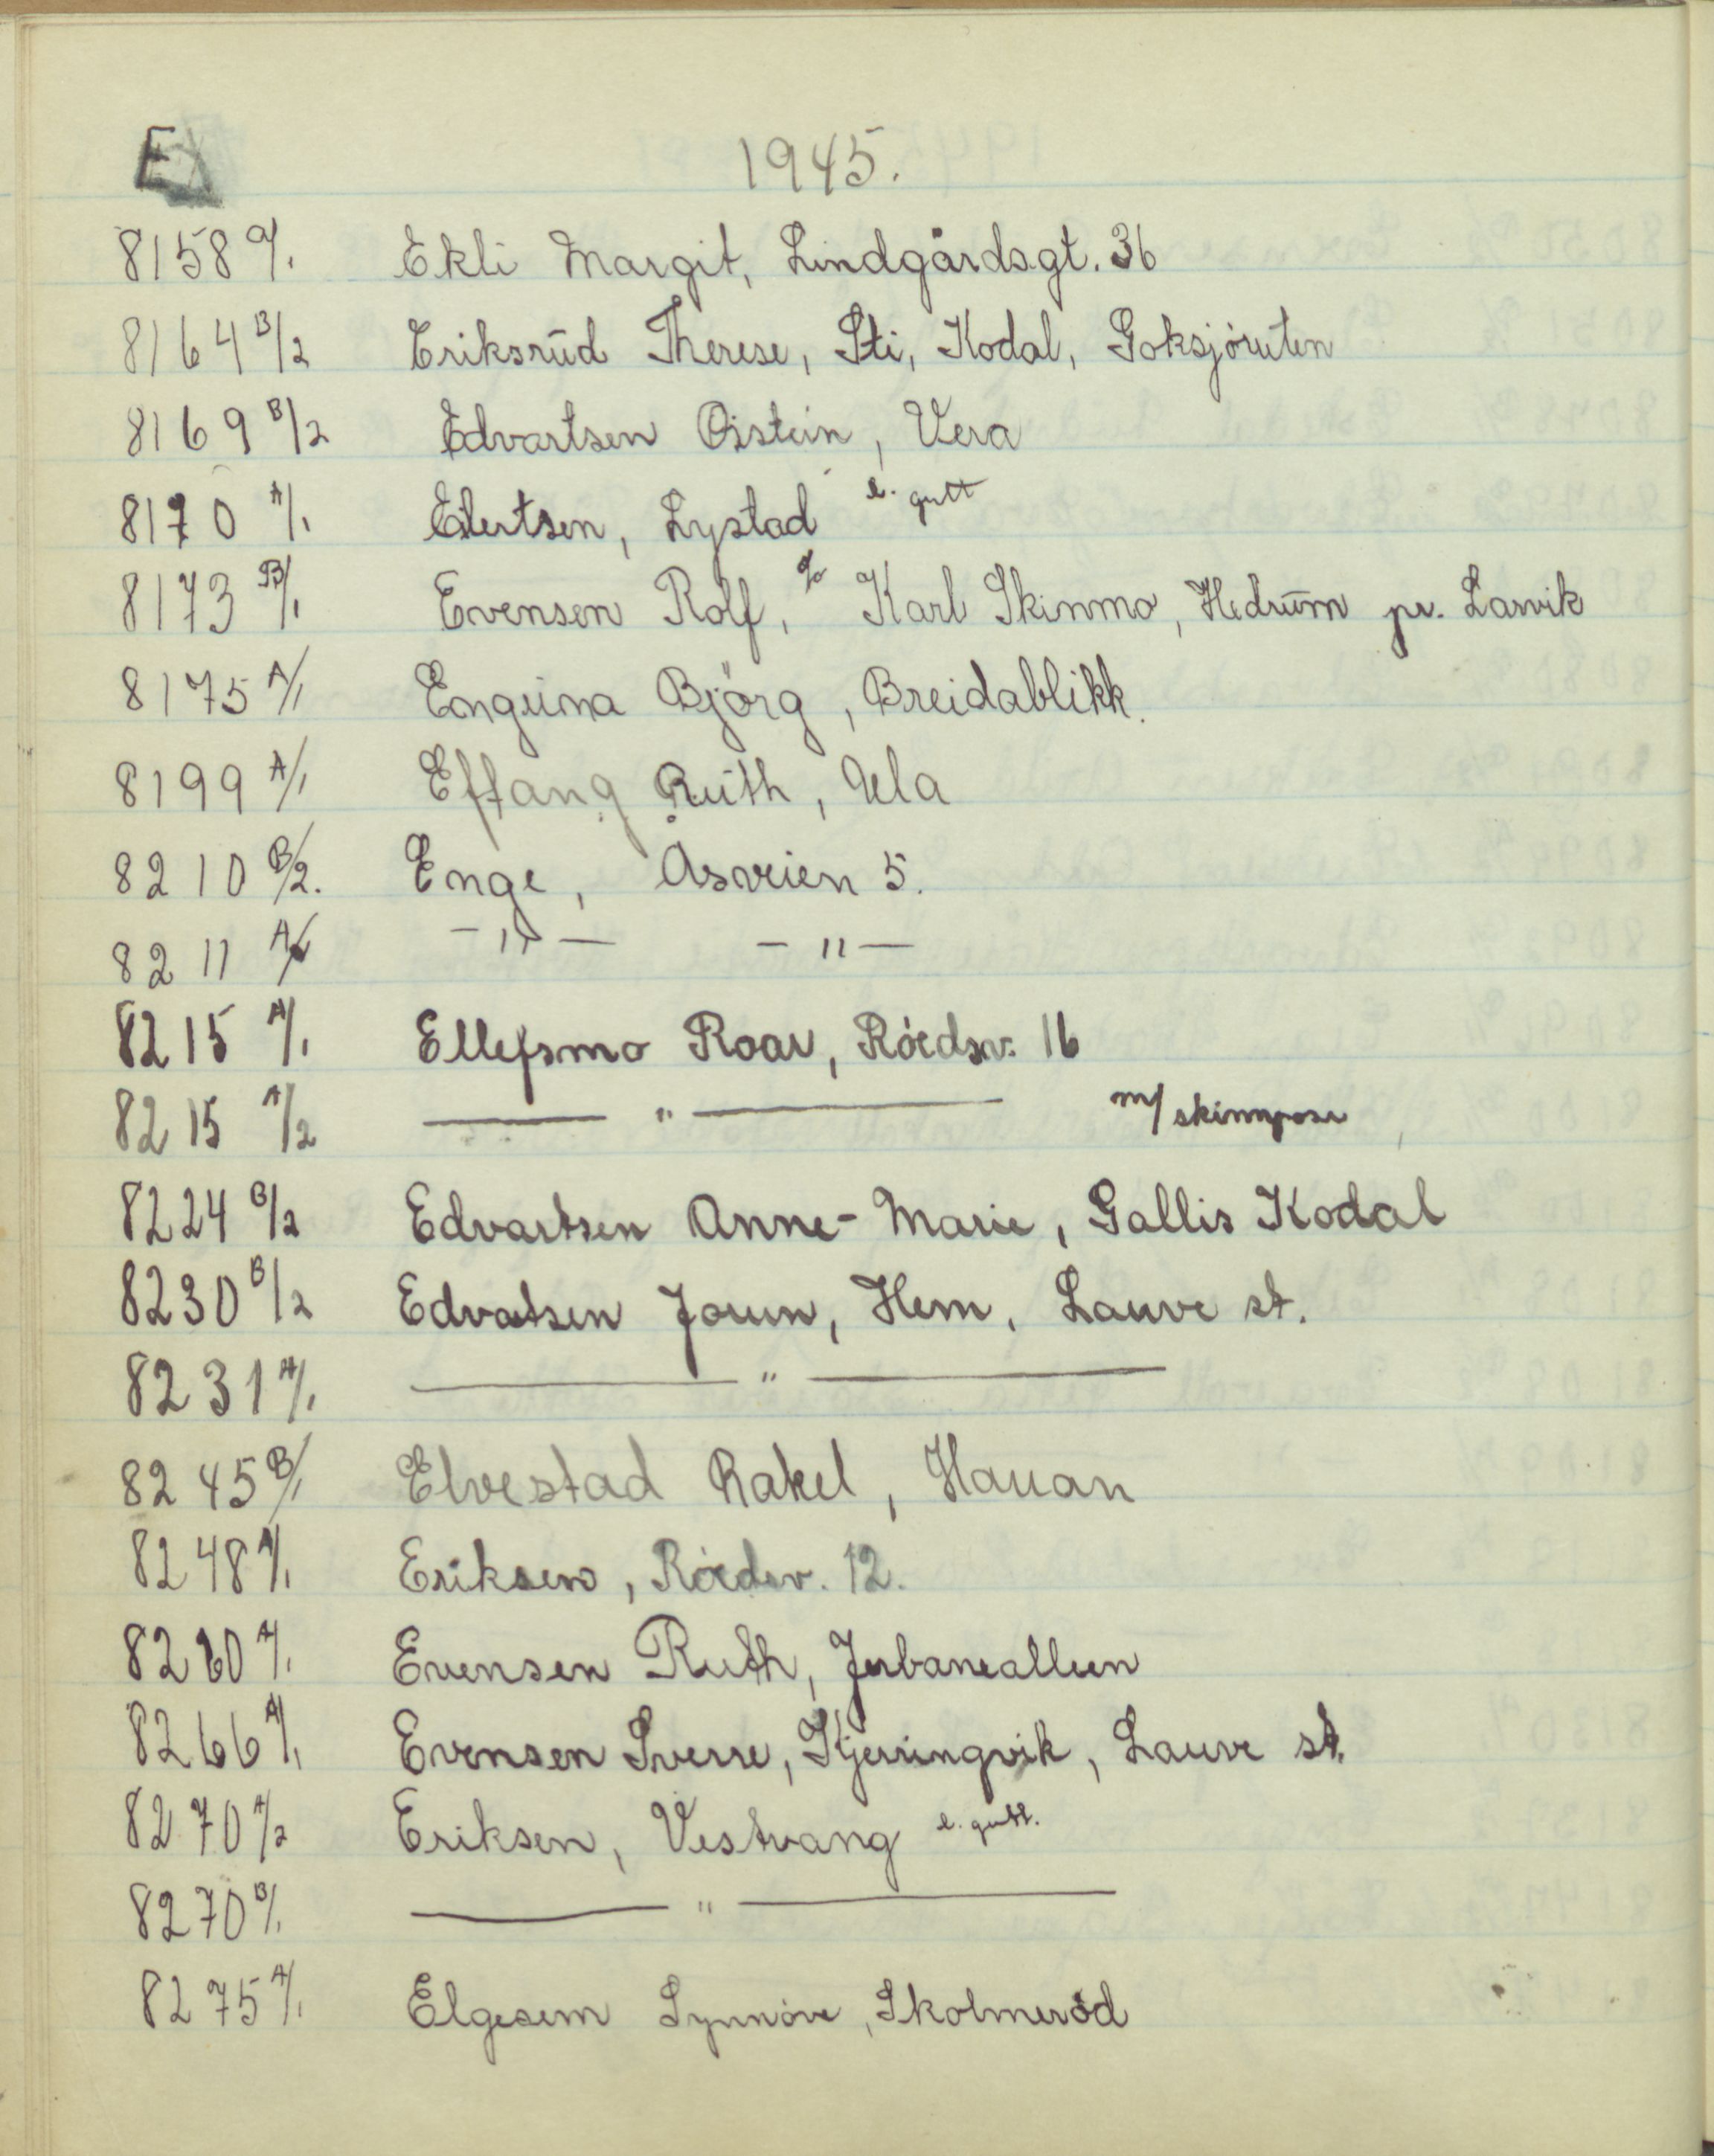 E 1945.
8158 A/1 Ekli Margit, Lindgårdsgt. 36
8164 B/2 Eriksrud Therese, Sti, Kodal, Goksjöruten
8169 B/2 Edvartsen Öistein, Vera
8170 A/1 Eilertsen, Lystad l. gutt
8173 B/1 Evensen Rolf, c/o Karl Skinmo, Hedrum pr. Larvik
8175 A/1 Björg, Breidablikk.
8199 A/1 Effang Ruth, Ula
8210 B/2. Enge, Åsveien 5.
8211 A/ -"- -"-
8215 A/1 Ellefsmo Roar, Röedsv. 16
8215 A/2 — " — m/ skinnpose
8224 B/2 Edvartsen Anne-Marie, Gallis Kodal
8230 B/2 Edvatsen Joun, Hem, Lauve st.
8231 A/1 — " —
8245 B/1 Elvestad Rakel, Hauan
8248 A/1 Eriksen, Röedsv. 12.
8260 A/1 Evensen Ruth, Jerbanealleen
8266 A/1 Evensen Sverre, Kjerringvik, Lauve st.
8270 A/2 Eriksen, Vestvang l. gutt.
8270 B/1 — " —
8275 A/1 Elgesem Synnöve, Skolmeröd